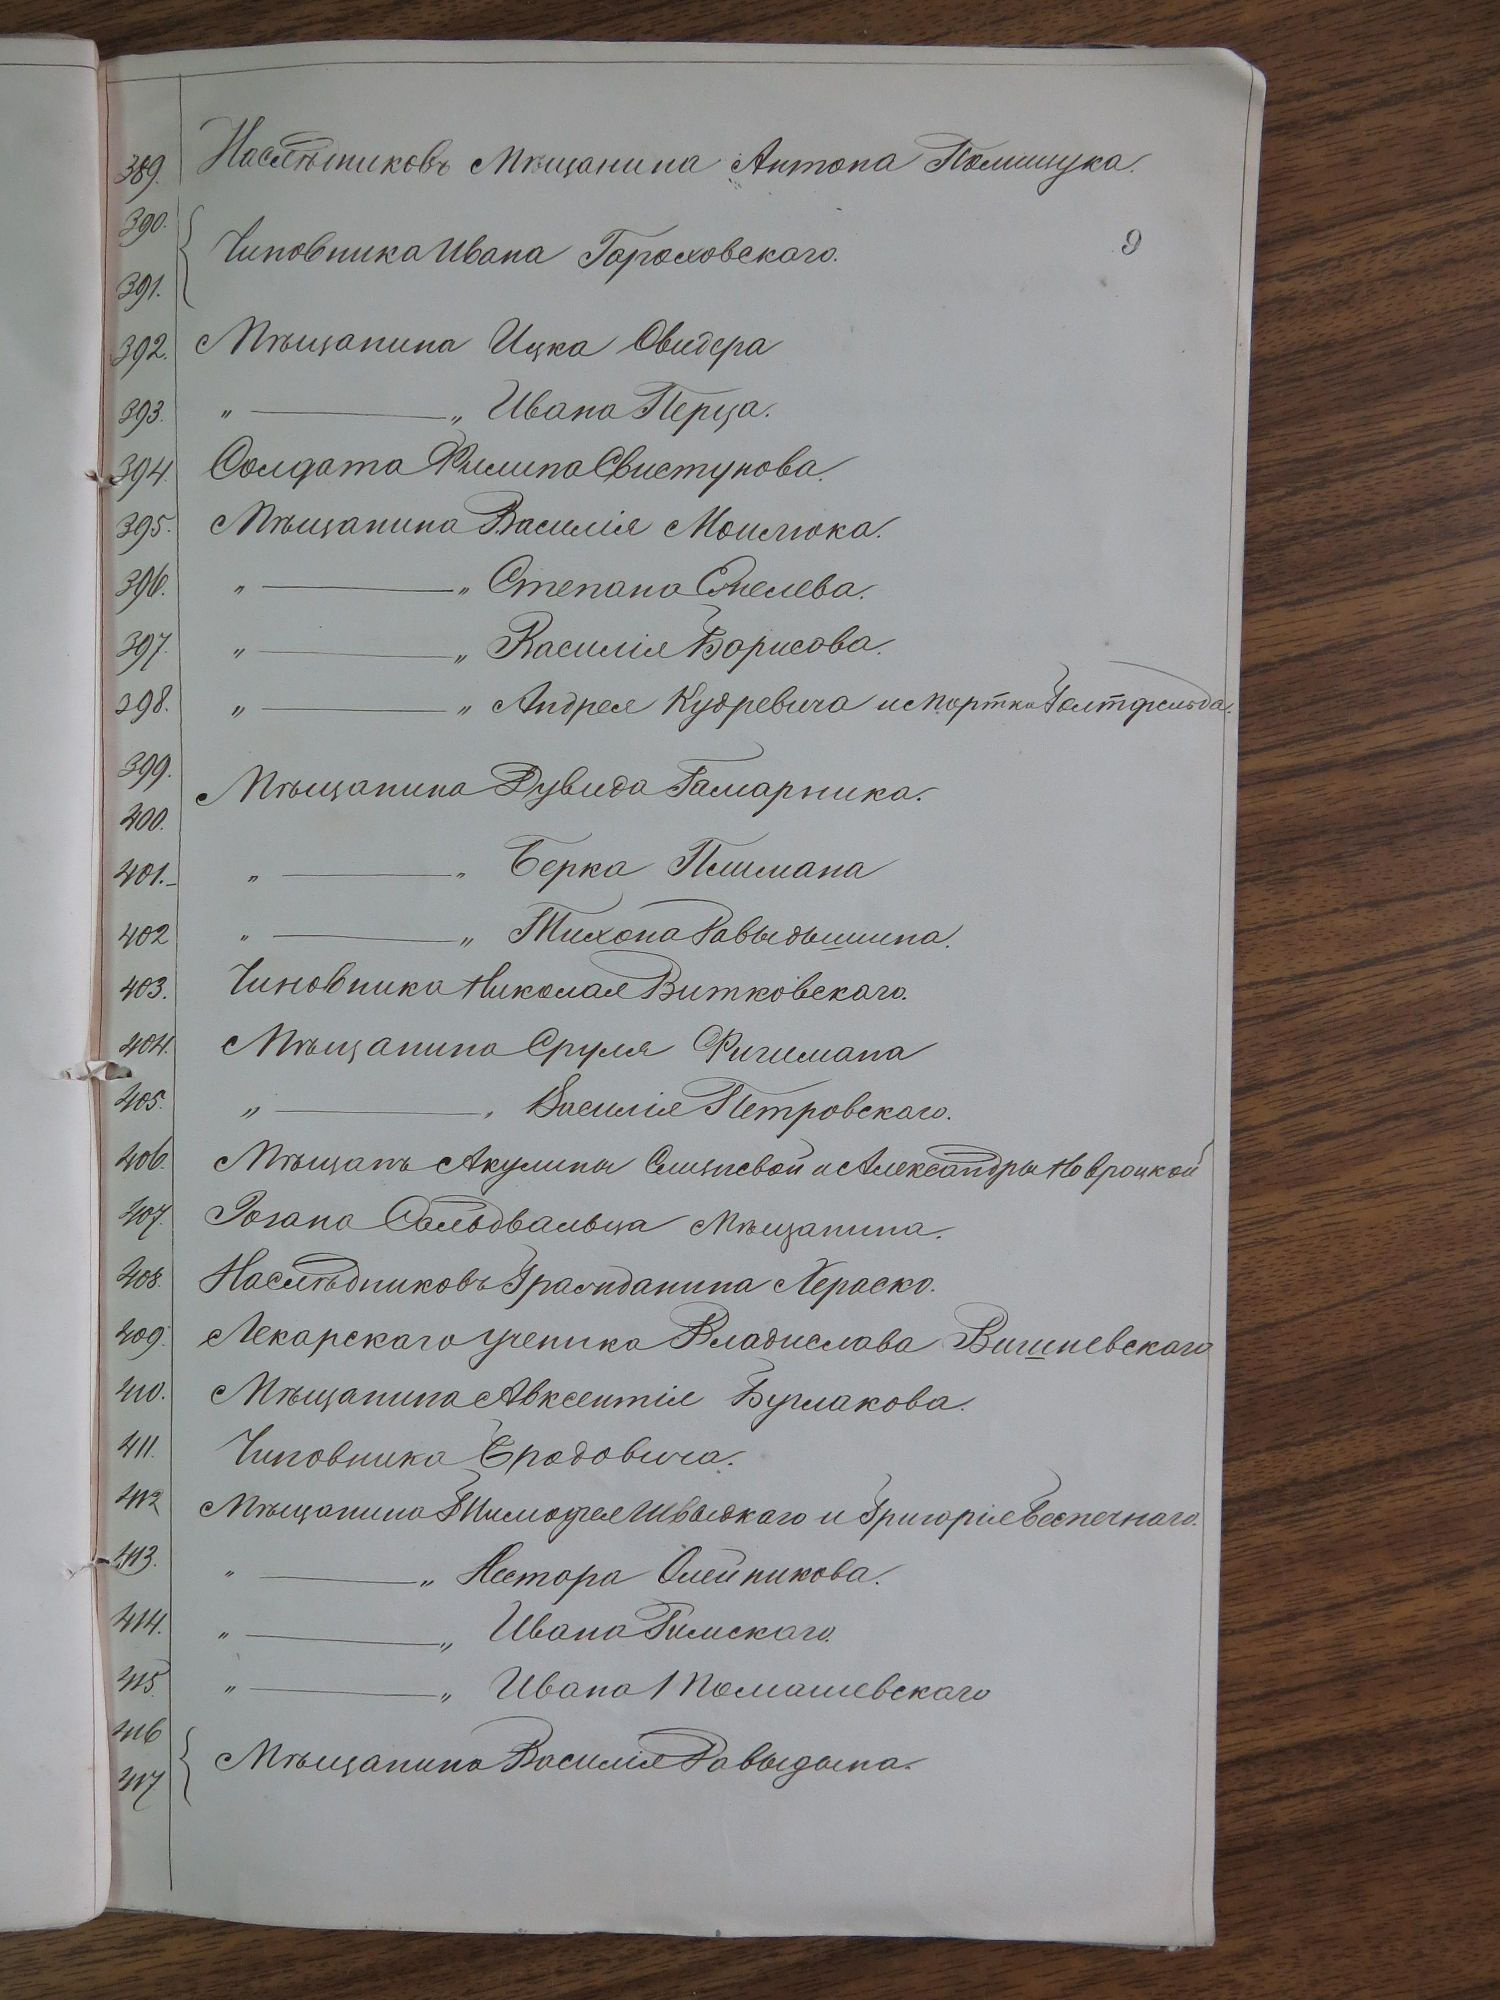 389. Наслѣтниковъ Мѣщанина Антона Полищука.
390.
9
Чиновника Ивана Гороховскаго.
391.
392. Мѣщанина Ицка Свидера
393. „ — „ Ивана Перца.
394. Солдата Филипа Свистунова.
395. Мѣщанина Василія Моилюка.
396. „ — „ Степана Смелева.
397. „ — „ Василія Борисова.
398. „ — „ Андрея Кудревича и Мортка Голтфельда.
399.
Мѣщанина Дувида Гамарника.
400.
401. „ — „ Берка Плимана
402 „ — „ Тихона Давыдышина.
403. Чиновника Николая Витковскаго.
404. Мѣщанина Сруля Фигимана
405. „ — „ Василія Петровскаго.
406. Мѣщанъ Акулины и Александры Новроцкой
407. Рогана Мѣщанина.
408. Наслѣдниковъ Гражданина Хераско.
409. Лекарскаго ученика Владислава Вишневскаго
410. Мѣщанина Авксентія Бурлакова.
411. Чиновника Бродовича.
412 Мѣщанина Тимофея Швыдкаго и Григорія Беспечнаго.
413. „ — „ Нестора Олейникова.
414. „ — „ Ивана Римскаго.
415. „ — „ Ивана Томашевскаго
416
Мѣщанина Василія Давыдына.
417